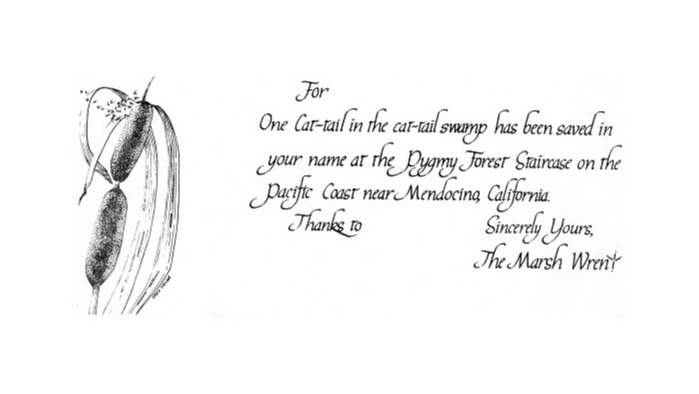 For
One Cat-tail in the cat-tail swamp has been saved in
your name at the Pygmy Forest Staircase on the
Pacific Coast near Mendocino, California.
Thanks to
Sincerely Yours,
The Marsh Wren